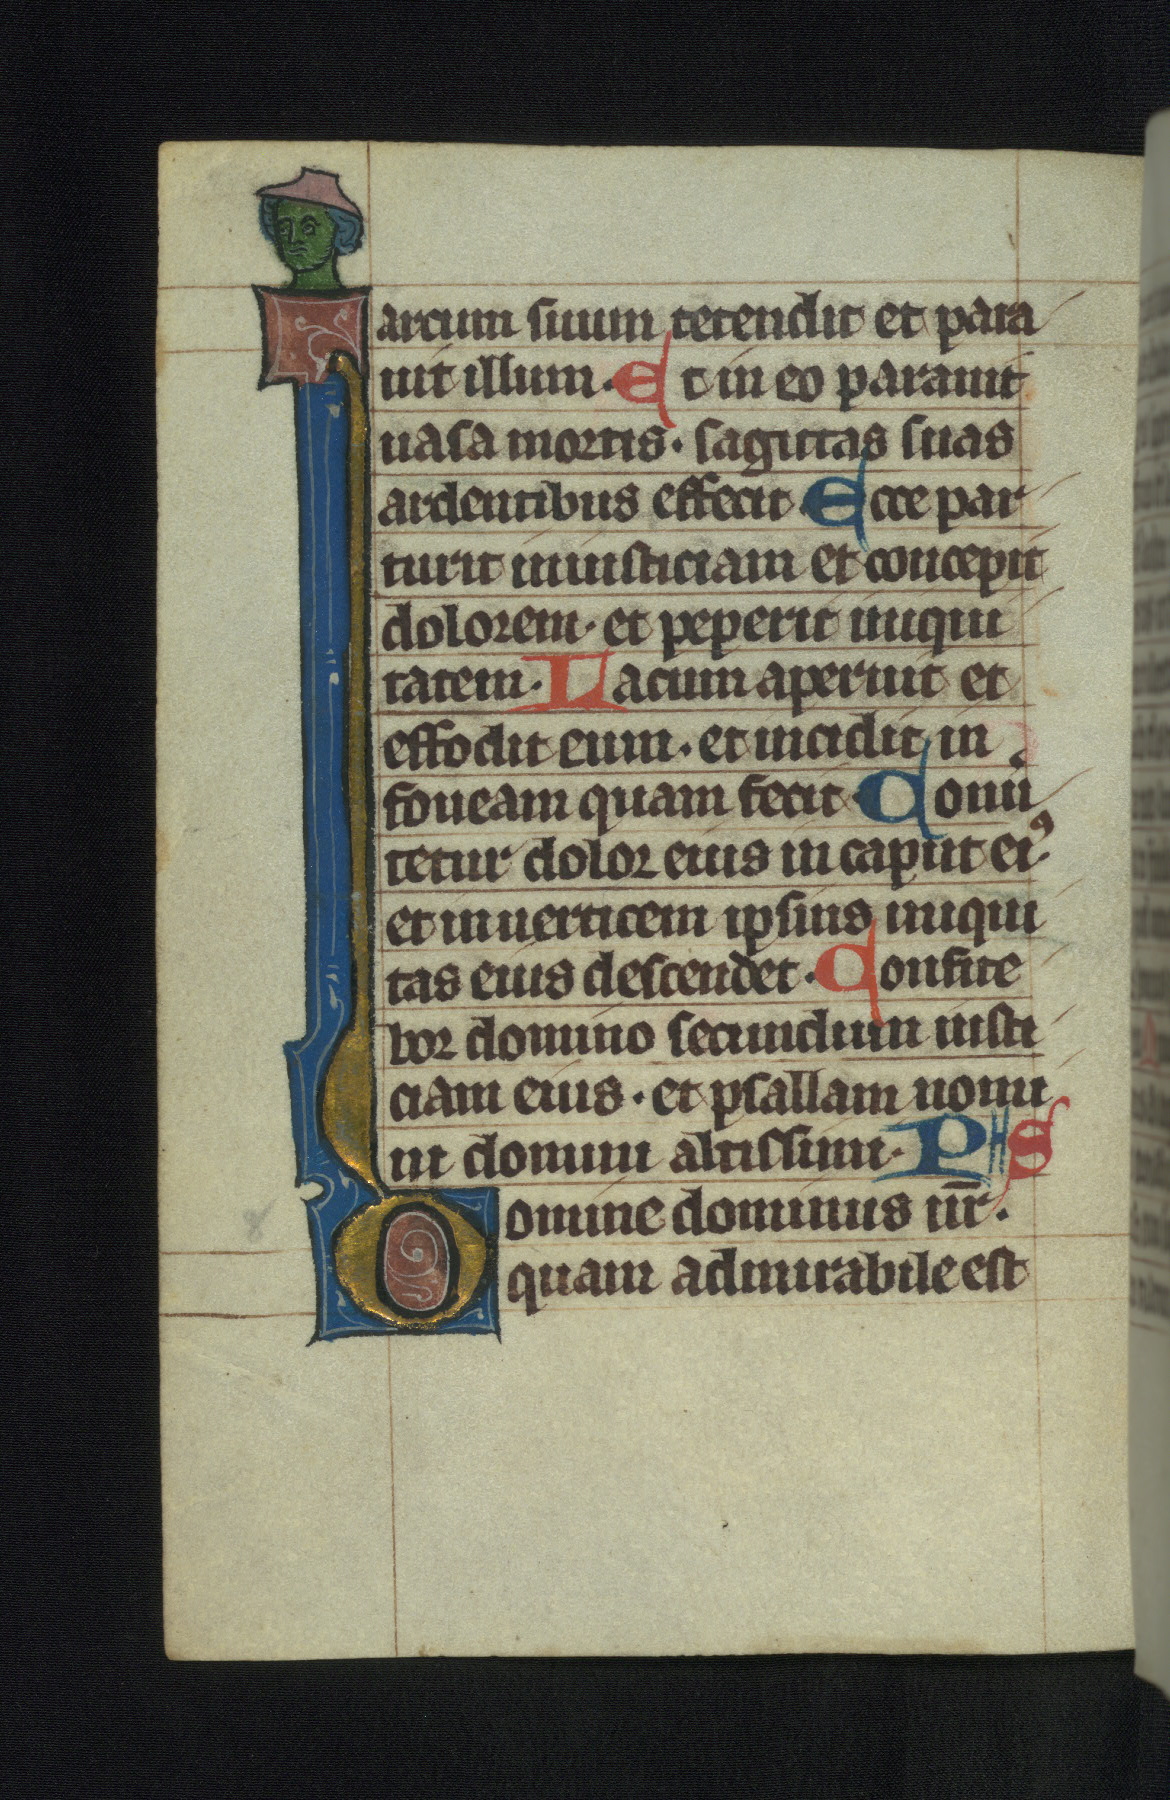 arcum suum tetendit et para
uit illum. Et in eo parauit
uasa mortis. sagittas suas
ardentibus effecit. Ecce par
turit iniusticiam et concepit
dolorem. et peperit iniqui
tatem. Lacum aperuit et
effodit eum. et incidit in
foueam quam fecit. Conu̅
tetur dolor eius in caput eiꝰ.
et in uerticem ipsius iniqui
tas eius descendet. Confite
bor domino secundum iusti
ciam eius. et psallam nomi
ni domini altissimi. PS
Domine dominus nr̅.
quam admirabile est
8